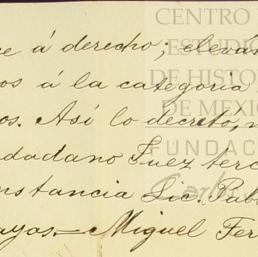 e á derecho; elevan
os á la categoria
os. Así lo decretó,
udadano Juez terc
nstancia Lic. Pabl
ayas.— Miguel Fer
CENTRO
ESTUDIO
DE HISTOR
DE MEXIC
FUNDAC
Carlos